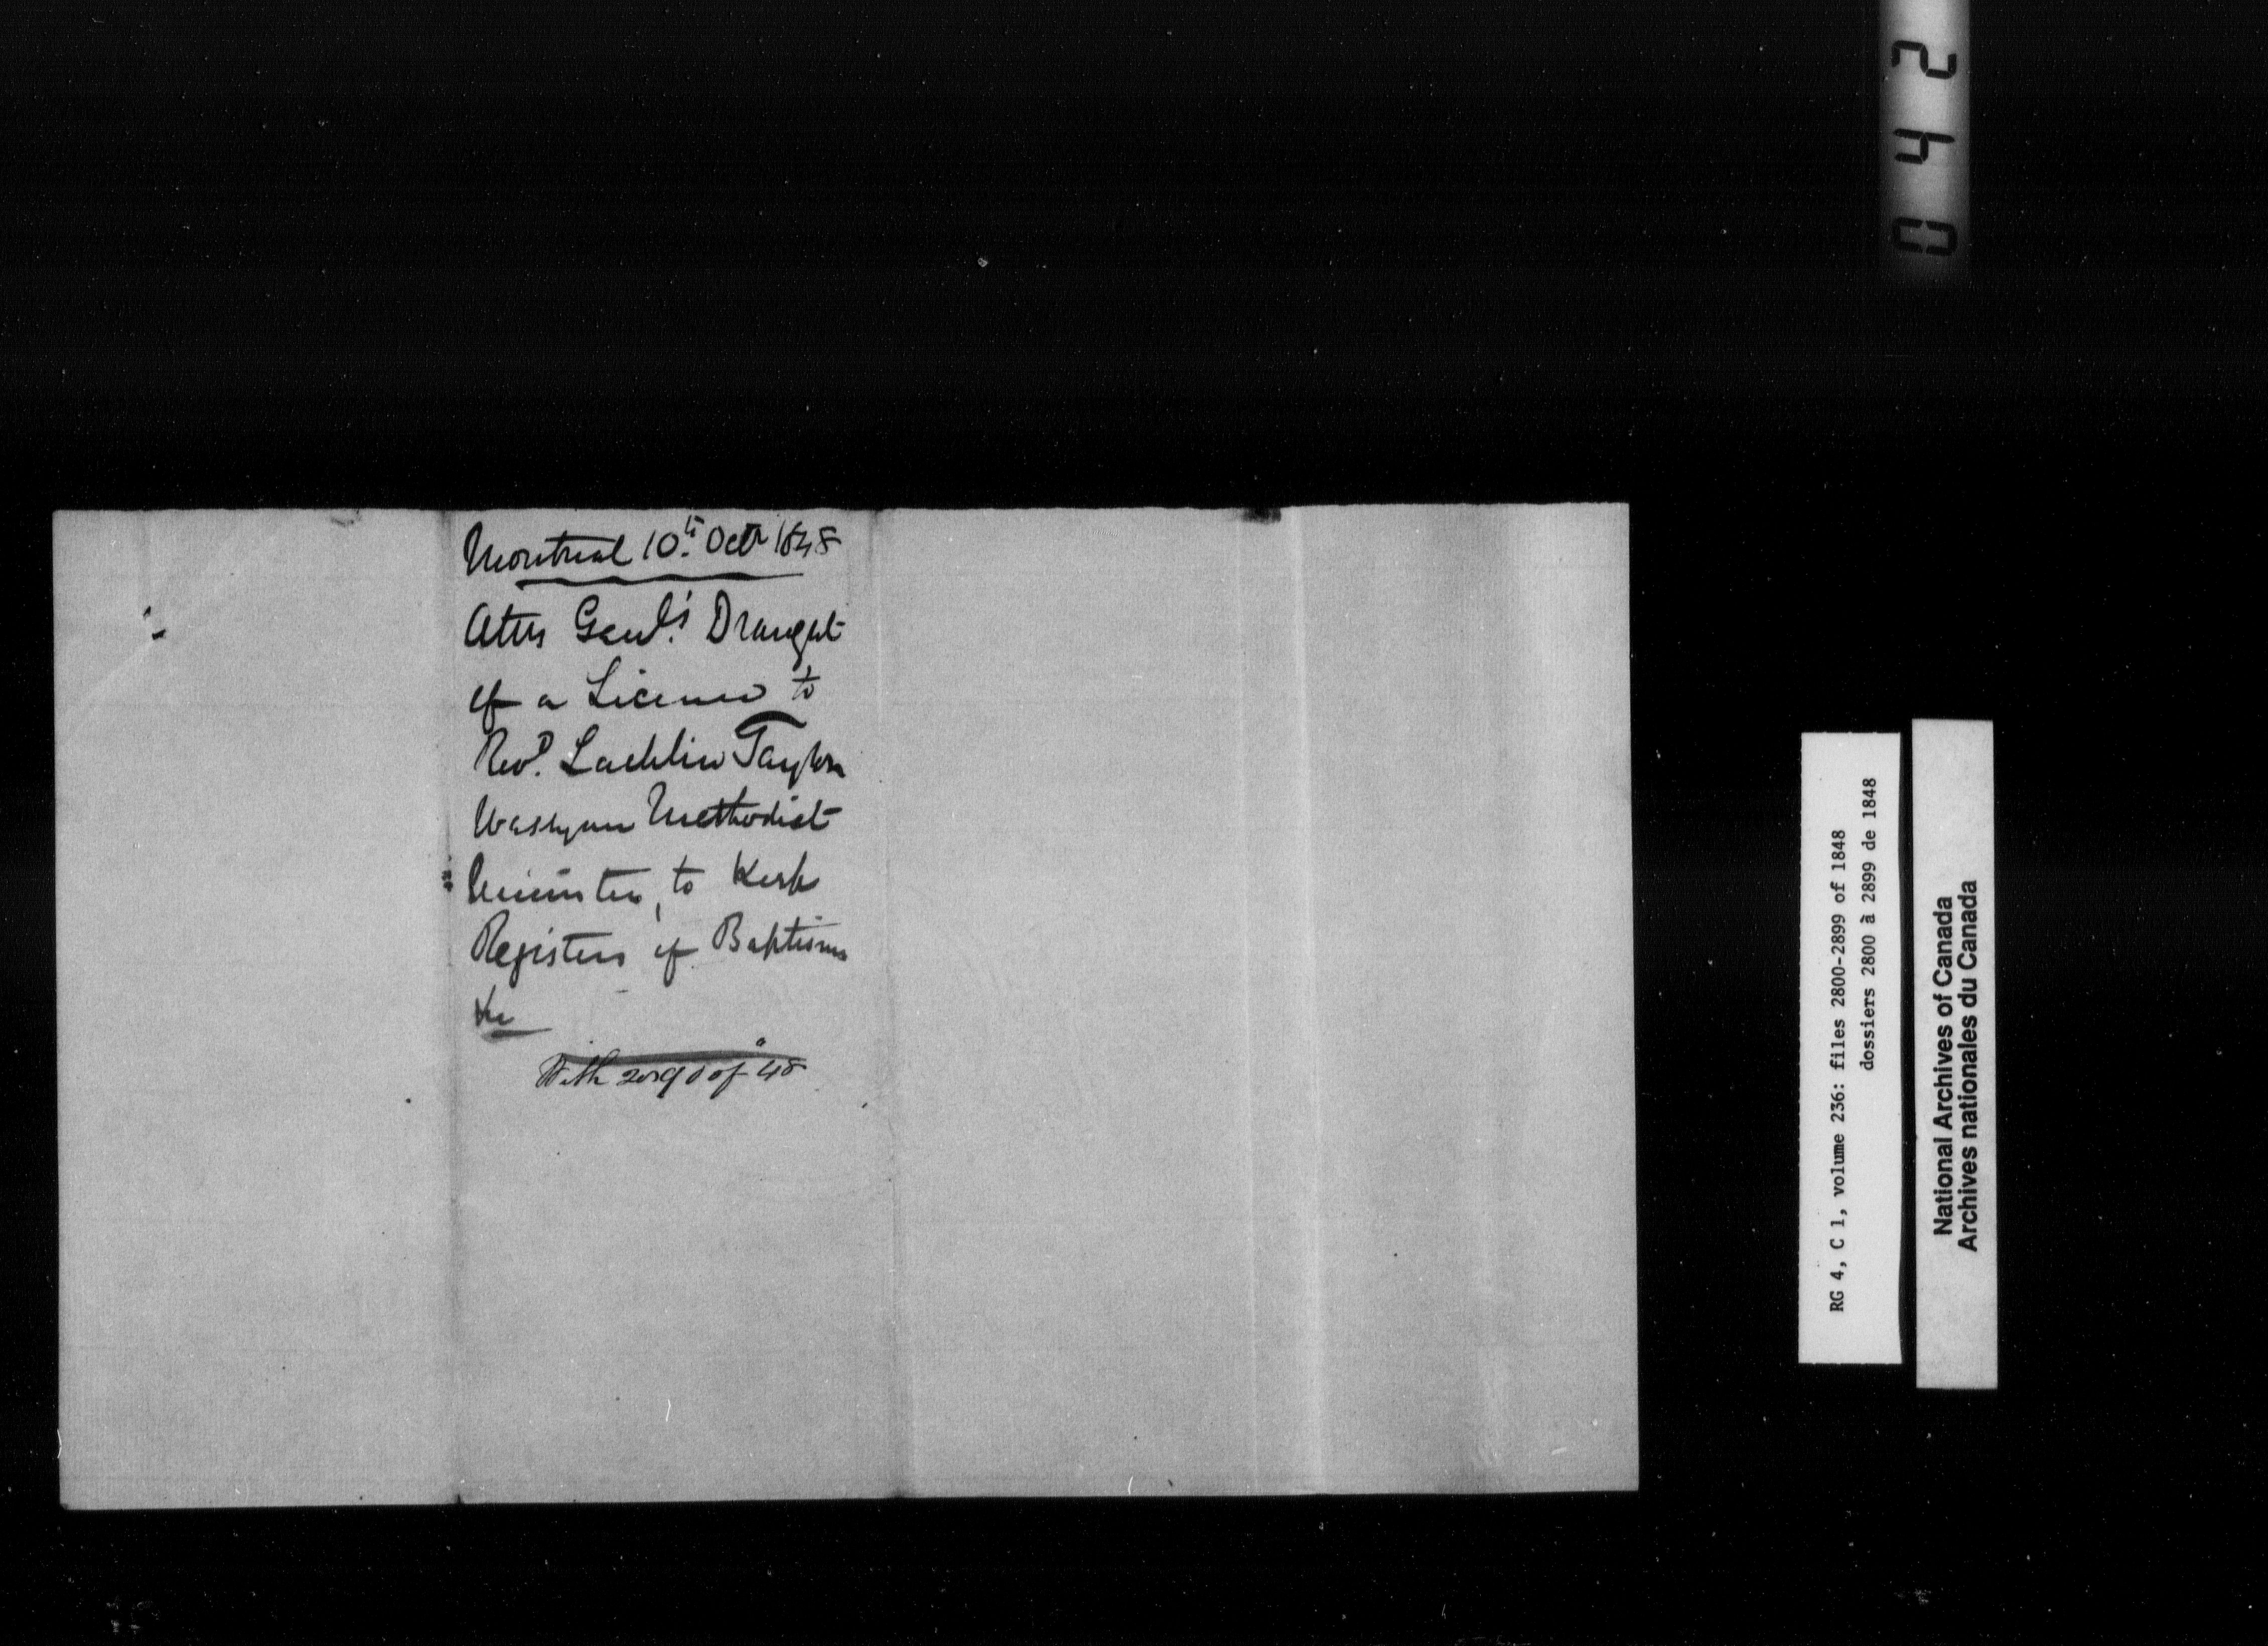 Montreal 10th Octr 1848
Atty Genl's Draught
of a License to
Revd. Lachlin Taylor
Wesleyan Methodist
Minister, to keep
Registers of Baptisms
&c
With of 48
042
RG 4, C 1, volume 236: files 2800-2899 of 1848
dossiers 2800 à 2899 de 1848
National Archives of Canada
Archives nationales du Canada